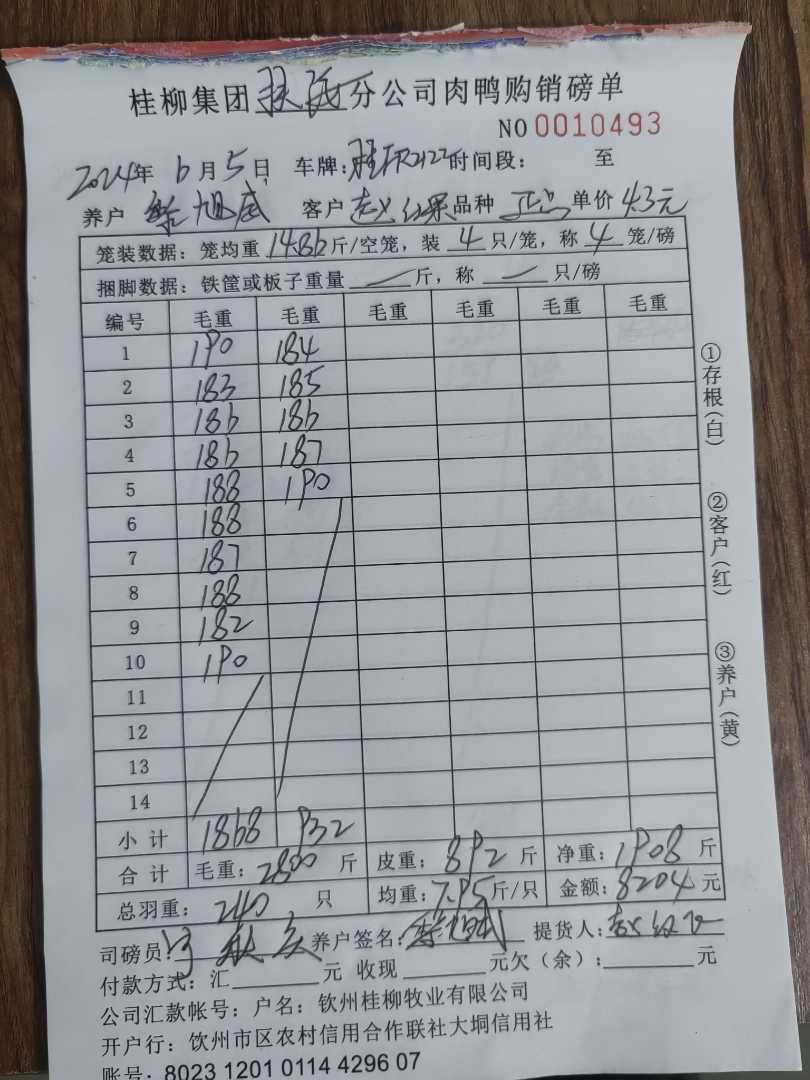 桂柳集团扶绥分公司肉鸭购销磅单
NO 0010493
2024年 6月5日 车牌: 时间段： 至
养户 客户 品种 正品 单价 4.3元
笼装数据：笼均重 14.86 斤/空笼，装 4 只/笼，称 4 笼/磅
捆脚数据：铁筐或板子重量 斤，称 只/磅
编号 毛重 毛重 毛重 毛重 毛重 毛重
1 190 184
2 183 185
3 186 186
4 186 187
5 188 190
6 188
7 187
8 188
9 182
10 190
11
12
13
14
小计 1868 932
合计 毛重：2800 斤 皮重：892 斤 净重：1908 斤
总羽重：240 只 均重：7.95斤/只 金额：8204 元
司磅员： 养户签名： 提货人：
付款方式：汇 元 收现 元欠（余）： 元
公司汇款帐号：户名：钦州桂柳牧业有限公司
开户行：饮州市区农村信用合作联社大垌信用社
账号：8023 1201 0114 4296 07
①存根（白）
②客户（红）
③养户（黄）